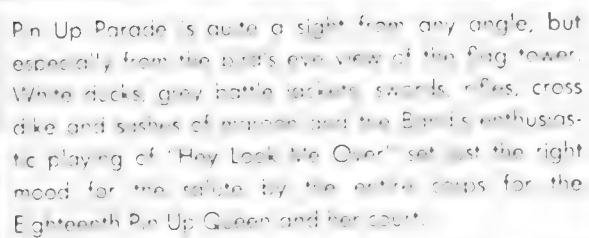 Pin Up Parade is quite a sight from any angle, but
especially from the bird's eye view of the flag tower.
White ducks, grey battle jackets, swords, rifles, cross
dike and sashes of maroon and the Band's enthusias-
tic playing of "Hey Look Me Over" set just the right
mood for the salute by the entire corps for the
Eighteenth Pin Up Queen and her court.